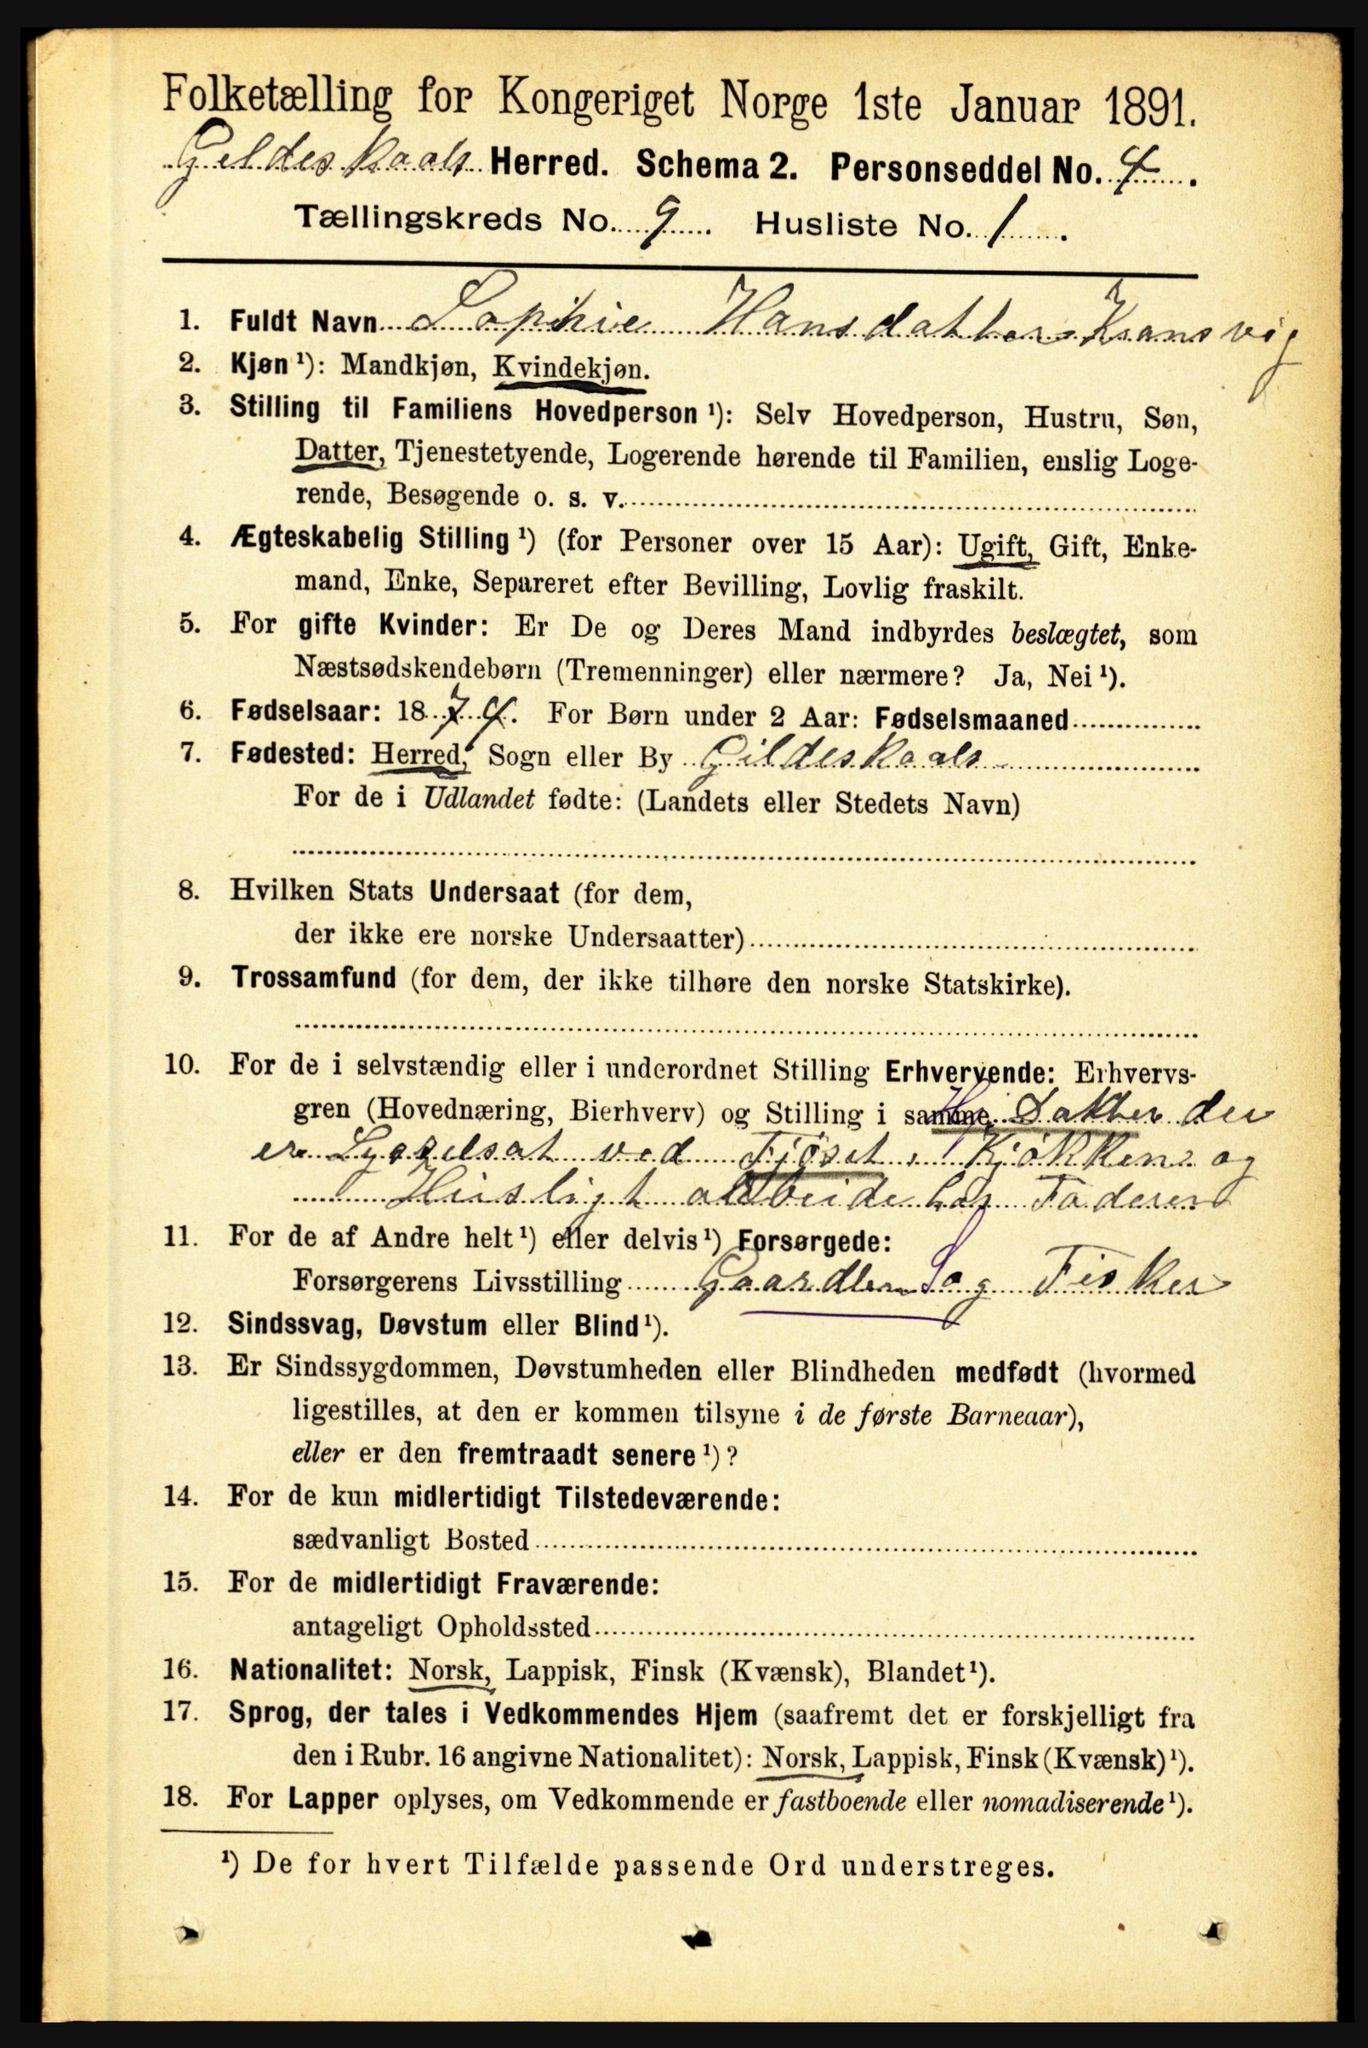 Folketælling for Kongeriget Norge 1ste Januar 1891.
Gildeskaals Herred. Schema 2. Personseddel No. 4.
Tællingskreds No. 9. Husliste No. 1.
1. Fuldt Navn Sophie Hansdatter Kransvig
2. Kjøn ¹): Mandkjøn, Kvindekjøn.
3. Stilling til Familiens Hovedperson ¹): Selv Hovedperson, Hustru, Søn,
Datter, Tjenestetyende, Logerende hørende til Familien, enslig Loge-
rende, Besøgende o. s. v.
4. Ægteskabelig Stilling ¹) (for Personer over 15 Aar): Ugift, Gift, Enke-
mand, Enke, Separeret efter Bevilling, Lovlig fraskilt.
5. For gifte Kvinder: Er De og Deres Mand indbyrdes beslægtet, som
Næstsødskendebørn (Tremenninger) eller nærmere? Ja, Nei ¹).
6. Fødselsaar: 1874. For Børn under 2 Aar: Fødselsmaaned
7. Fødested: Herred, Sogn eller By Gildeskaals
For de i Udlandet fødte: (Landets eller Stedets Navn)
8. Hvilken Stats Undersaat (for dem,
der ikke ere norske Undersaatter)
9. Trossamfund (for dem, der ikke tilhøre den norske Statskirke).
10. For de i selvstændig eller i underordnet Stilling Erhvervende: Erhvervs-
gren (Hovednæring, Bierhverv) og Stilling i samme Datter der
er Sysselsat ved Fjöset, Kjökken og
Husligt arbeide hos Faderen
11. For de af Andre helt ¹) eller delvis ¹) Forsørgede:
Forsørgerens Livsstilling Gaardbr. S og Fisker
12. Sindssvag, Døvstum eller Blind ¹).
13. Er Sindssygdommen, Døvstumheden eller Blindheden medfødt (hvormed
ligestilles, at den er kommen tilsyne i de første Barneaar),
eller er den fremtraadt senere ¹)?
14. For de kun midlertidigt Tilstedeværende:
sædvanligt Bosted
15. For de midlertidigt Fraværende:
antageligt Opholdssted
16. Nationalitet: Norsk, Lappisk, Finsk (Kvænsk), Blandet ¹).
17. Sprog, der tales i Vedkommendes Hjem (saafremt det er forskjelligt fra
den i Rubr. 16 angivne Nationalitet): Norsk, Lappisk, Finsk (Kvænsk) ¹).
18. For Lapper oplyses, om Vedkommende er fastboende eller nomadiserende ¹).
¹) De for hvert Tilfælde passende Ord understreges.